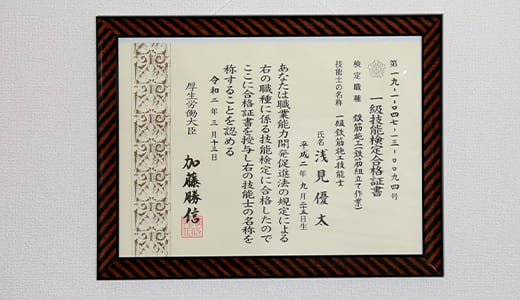 第一九-一-〇四七-一三-〇〇九四号
一級技能検定合格証書
検定職種 鉄筋施工(鉄筋組立て作業)
技能士の名称 一級鉄筋施工技能士
氏名 浅見優太
平成二年九月二十五日生
あなたは職業能力開発促進法の規定による
右の職種に係る技能検定に合格したので
ここに合格証書を授与し右の技能士の名称を
称することを認める
令和二年三月十三日
厚生労働大臣 加藤勝信